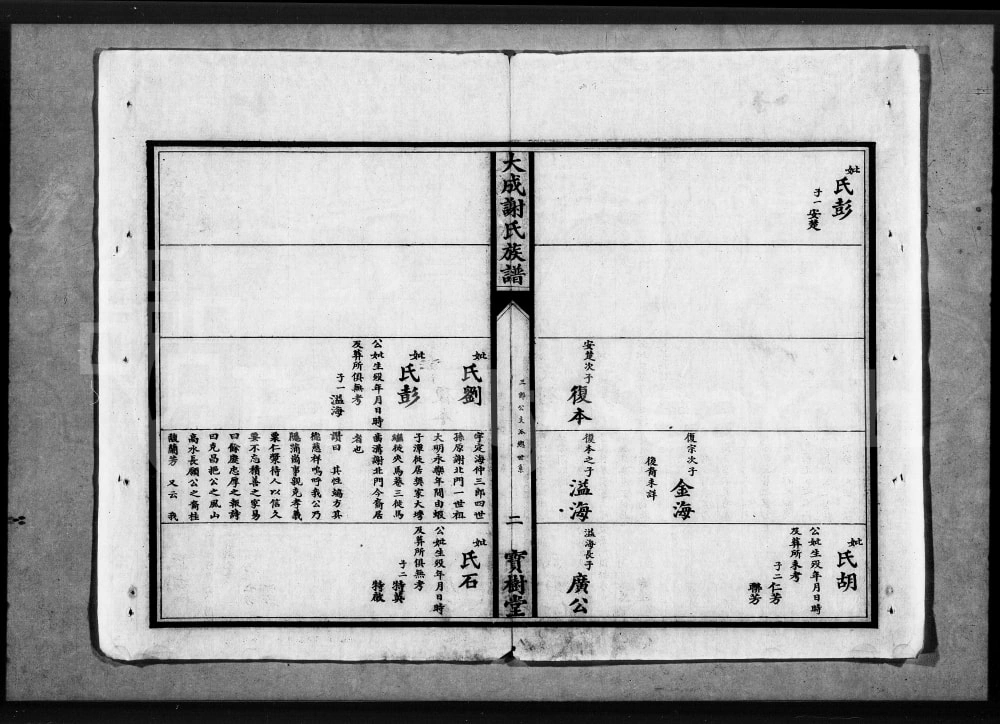 妣
氏彭
子一安楚
安楚次子
復本
復宗次子
金海
後裔未詳
復本之子
溢海
妣
氏胡
公妣生歿年月日時
及葬所未考
子二仁芳
聯芳
溢海長子
廣公
大成謝氏族譜
三郎公支派總世系
二
寶樹堂
妣
氏劉
妣
氏彭
公妣生歿年月日時
及葬所俱無考
子一溢海
字定海仲三郎四世
孫原謝北門一世祖
大明永樂年間由蝦
子潭徙居與家大塘
繼徙夾馬巷三徙馬
齒溝謝北門今裔居
者也
讚曰 其性端方其
德慈祥嗚呼我公乃
隱蒲崗事親克孝義
粟仁漿待人以信久
要不忘積善之家易
曰餘慶忠厚之報詩
曰克昌挹公之風山
高水長願公之裔桂
馥蘭芳 又云 我
妣
氏石
公妣生歿年月日時
及葬所俱無考
子二特冀
特啟